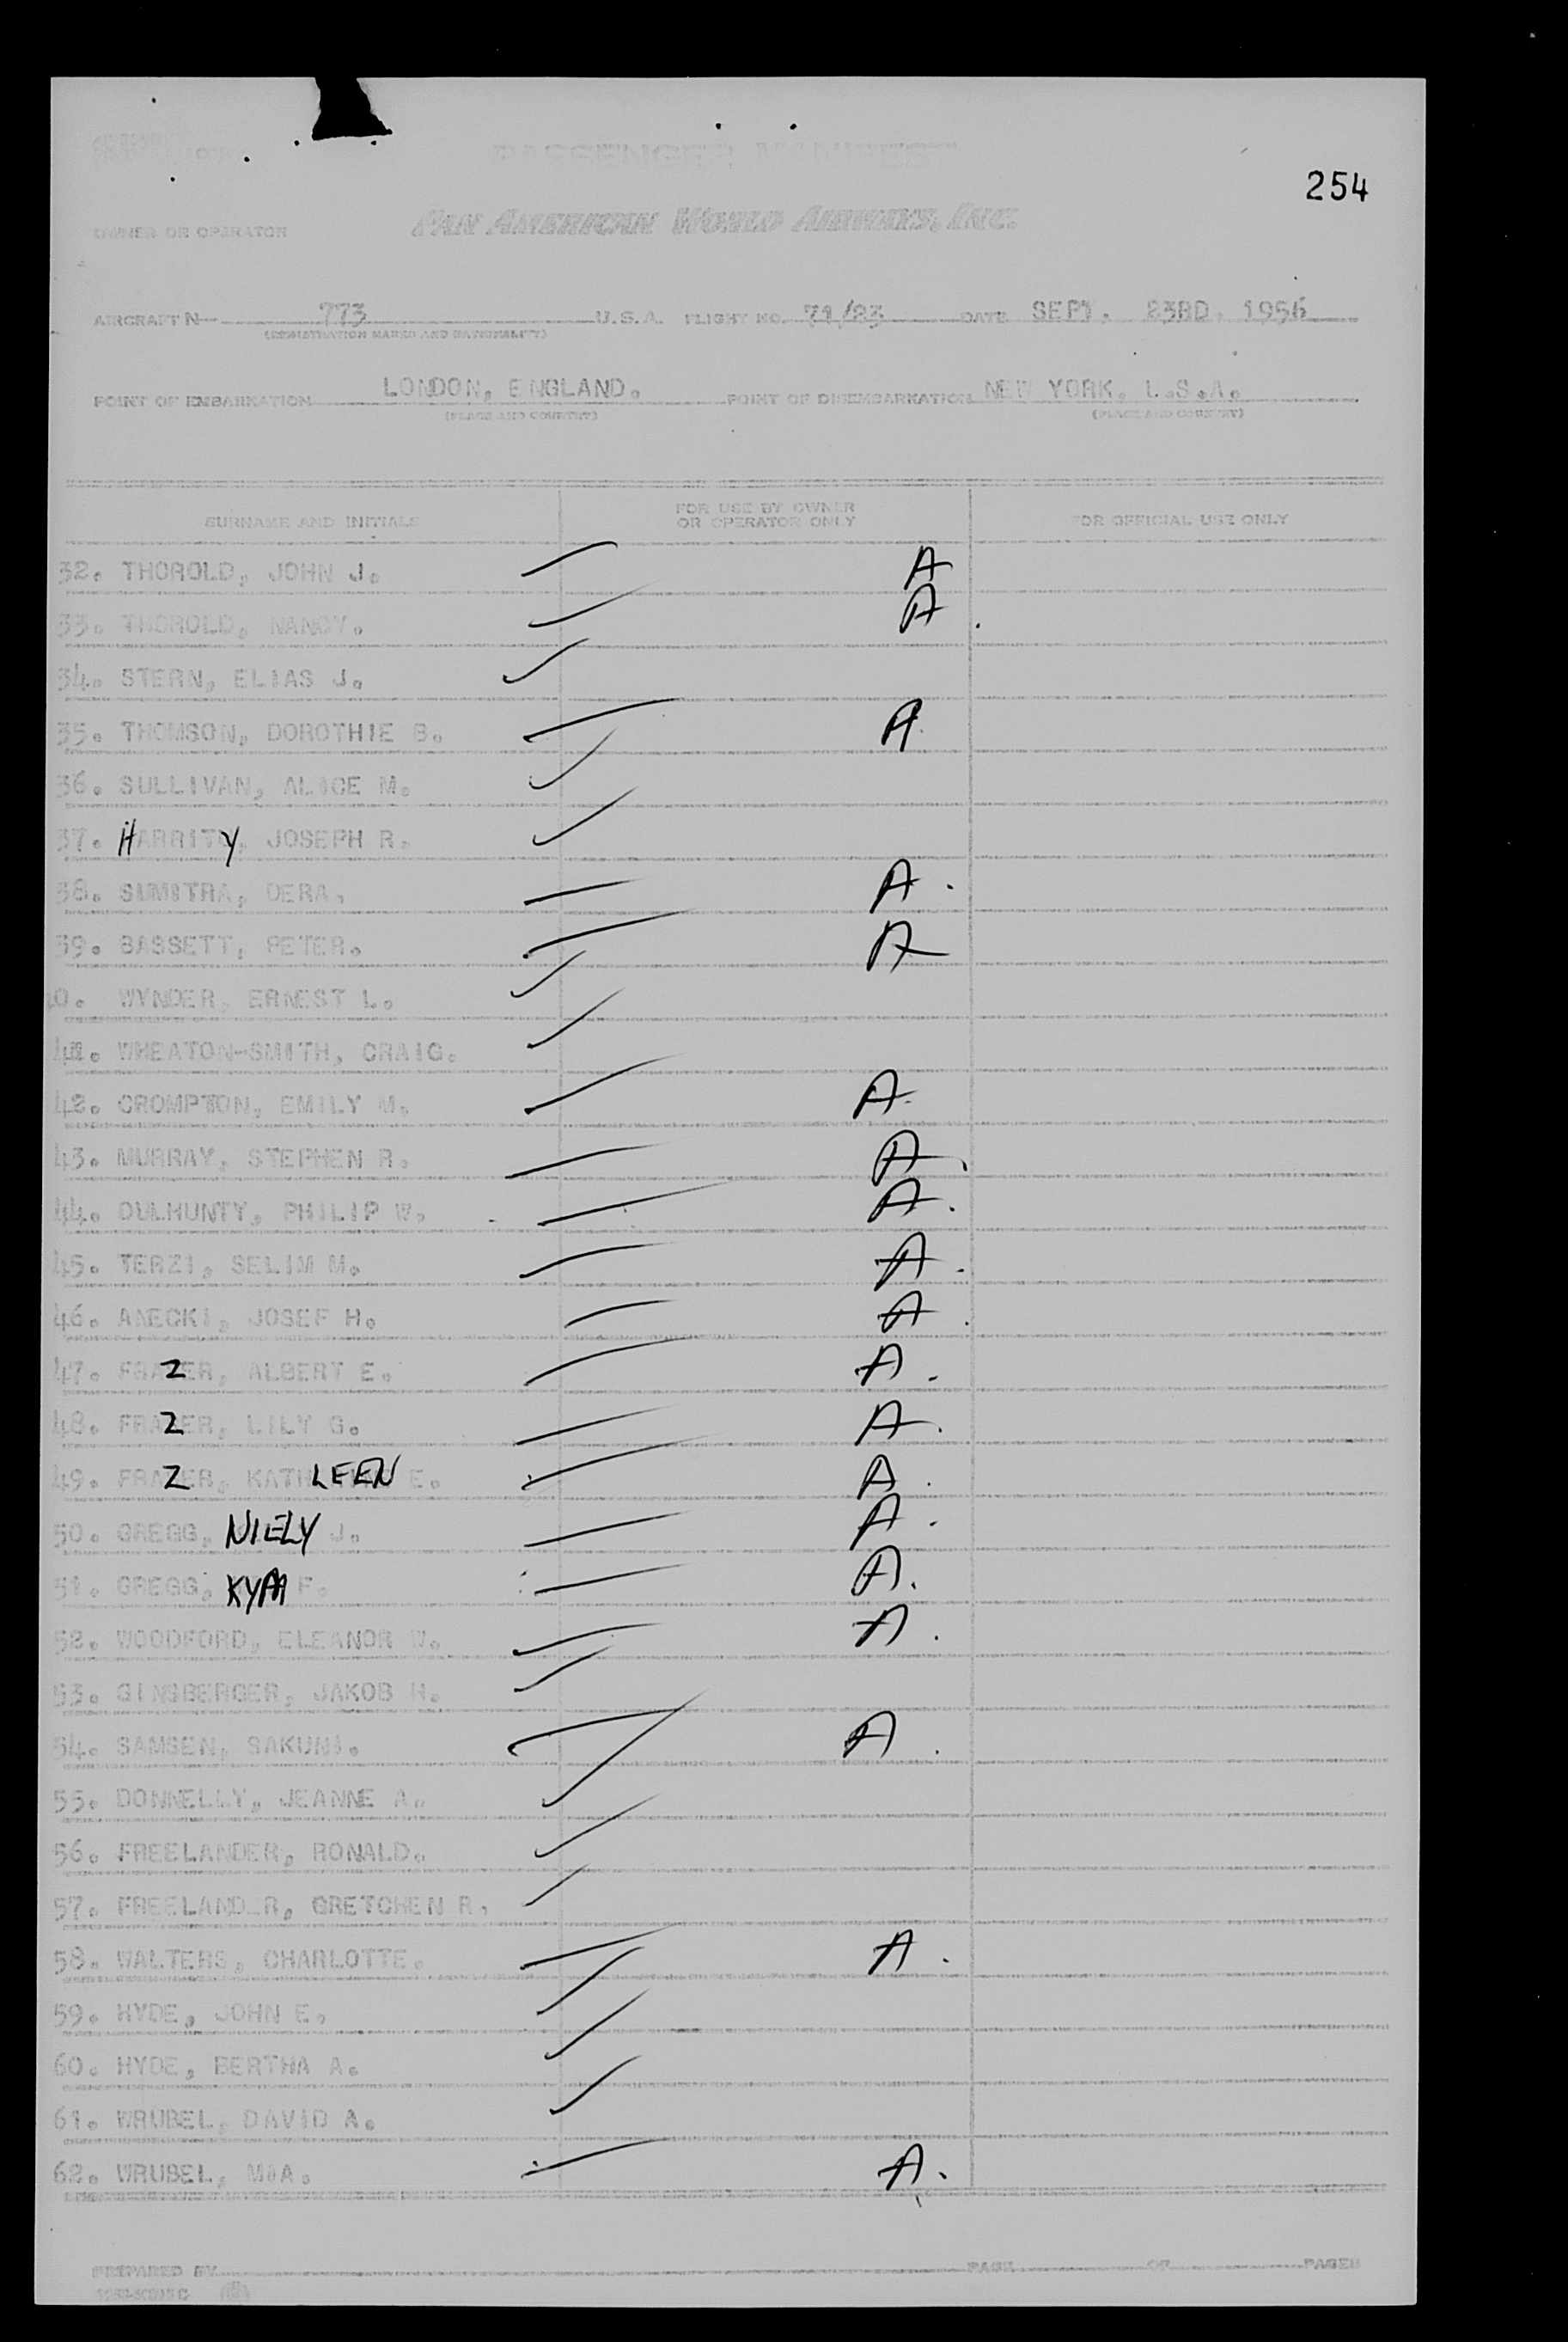 254
PASSENGER MANIFEST
OWNER OR OPERATOR PAN AMERICAN WORLD AIRWAYS, INC.
AIRCRAFT N- 773 U.S.A. FLIGHT NO. 71/23 DATE SEPT. 23RD, 1956
(REGISTRATION MARKS AND NATIONALITY)
POINT OF EMBARKATION LONDON, ENGLAND. POINT OF DISEMBARKATION NEW YORK, U.S.A.
(PLACE AND COUNTRY) (PLACE AND COUNTRY)
SURNAME AND INITIALS FOR USE BY OWNER OR OPERATOR ONLY FOR OFFICIAL USE ONLY
32. THOROLD, JOHN J. A
33. THOROLD, NANCY. A
34. STERN, ELIAS J.
35. THOMSON, DOROTHIE B. A
36. SULLIVAN, ALICE M.
37. HARRITY, JOSEPH R.
38. SUMITRA, DERA. A
39. BASSETT, PETER. A
0. WYNDER, ERNEST L.
41. WHEATON-SMITH, CRAIG.
42. CROMPTON, EMILY M. A
43. MURRAY, STEPHEN R. A
44. DULHUNTY, PHILIP W. A
45. TERZI, SELIM M. A
46. ANECKI, JOSEF H. A
47. FRAZER, ALBERT E. A
48. FRAZER, LILY G. A
49. FRAZER, KATHLEEN E. A
50. GREGG, NIELY J. A
51. GREGG, KYM F. A
52. WOODFORD, ELEANOR W. A
53. GINSBERGER, JAKOB H.
54. SAMSEN, SAKUNI. A
55. DONNELLY, JEANNE A.
56. FREELANDER, RONALD.
57. FREELAND_R, GRETCHEN R.
58. WALTERS, CHARLOTTE. A
59. HYDE, JOHN E.
60. HYDE, BERTHA A.
61. WRUBEL, DAVID A.
62. WRUBEL, MIA. A
PREPARED BY PAGE OF PAGES